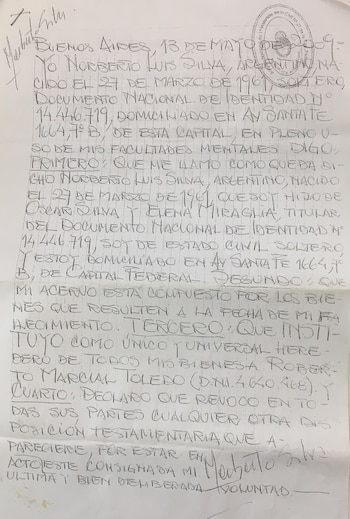 Norberto Silva
BUENOS AIRES, 13 DE MAYO DE 2009-
YO NORBERTO LUIS SILVA, ARGENTINO, NA
CIDO EL 27 DE MARZO DE 1961, SOLTERO,
DOCUMENTO NACIONAL DE IDENTIDAD Nº
14.446.719, DOMICILIADO EN AV SANTA FE
1664, 7º B, DE ESTA CAPITAL, EN PLENO U-
SO DE MIS FACULTADES MENTALES DIGO:
PRIMERO: QUE ME LLAMO COMO QUEDA DI
CHO NORBERTO LUIS SILVA, ARGENTINO, NACIDO
EL 27 DE MARZO DE 1961, QUE SOY HIJO DE
OSCAR SILVA Y ELENA MIRAGLIA, TITULAR
DEL DOCUMENTO NACIONAL DE IDENTIDAD Nº
14.446.719, SOY DE ESTADO CIVIL SOLTERO,
Y ESTOY DOMICILIADO EN AV SANTA FE 1664, 7º
B, DE CAPITAL FEDERAL. SEGUNDO: QUE
MI ACERVO ESTÁ COMPUESTO POR LOS BIE-
NES QUE RESULTEN A LA FECHA DE MI FA
LLECIMIENTO. TERCERO: QUE INSTI-
TUYO COMO ÚNICO Y UNIVERSAL HERE-
DERO DE TODOS MIS BIENES A ROBER-
TO MARCIAL TOLEDO (D.N.I. 4.640.) Y
CUARTO: DECLARO QUE REVOCO EN TO-
DAS SUS PARTES CUALQUIER OTRA DIS
POSICIÓN TESTAMENTARIA QUE A-
PARECIERE, POR ESTAR EN
ACTO ESTE CONSIGNADA MI Norberto Silva
ULTIMA Y BIEN DELIBERADA VOLUNTAD